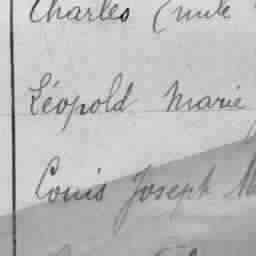 Charles Emile
Léopold Marie
Louis Joseph